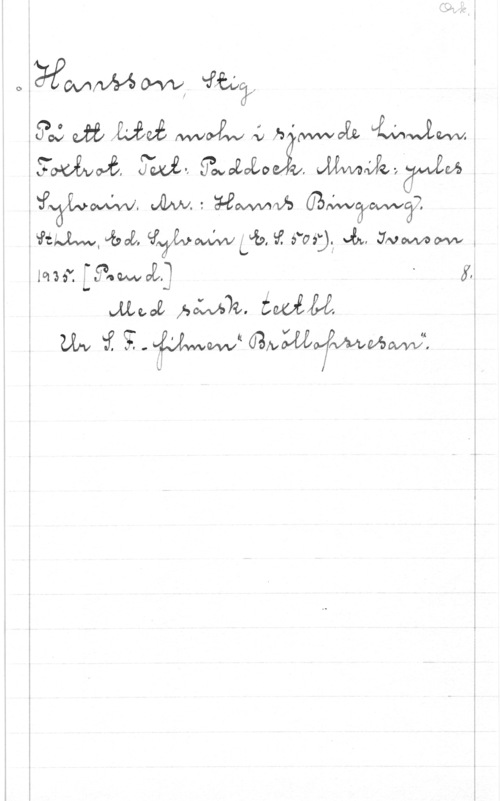 Ork.
Hansson, Stig
På ett litet moln i sjunde himlen.
Foxtrot. Text: Paddock. Musik: Jules
Sylvain. Arr.: Hanns Bingang?.
Sthlm, Ed. Sylvain (E. S. 505); tr. Ivarson
1935. [Pseud.] 8.
Med särsk. textbl.
Ur S. F.-filmen "Bröllopsresan".